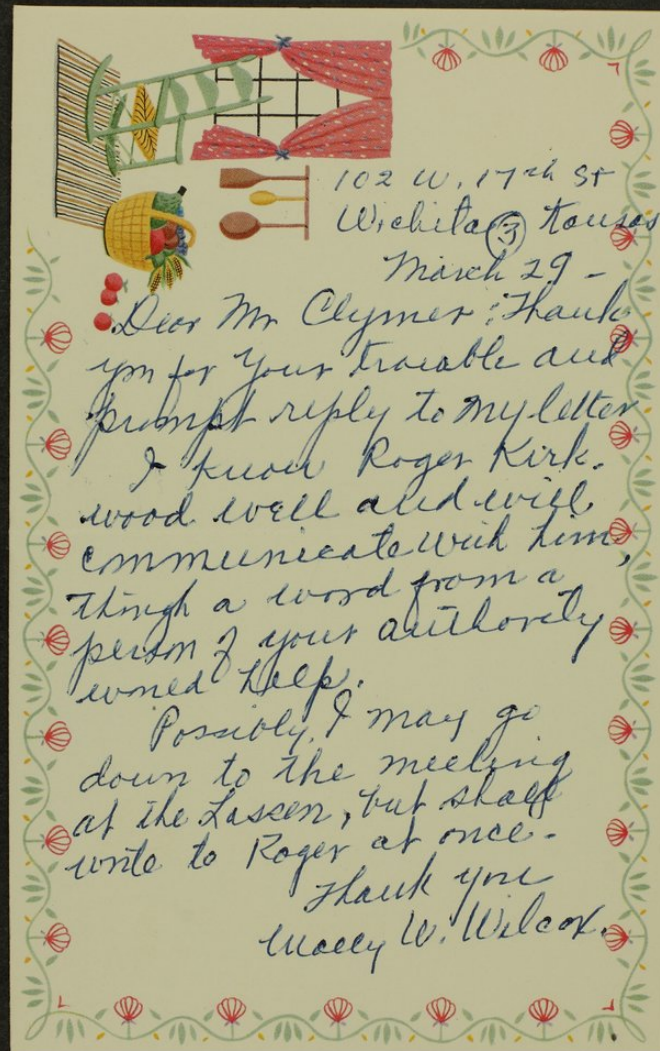 102 W. 17th St
Wichita (3) Kansas
March 29 -
Dear Mr Clymer : Thank
you for your trouable and
prompt reply to my letter
I know Roger Kirk-
wood well and will
communicate with him,
though a word from a
person of your authority
would help.
Possibly, I may go
down to the meeting
at the Lassen, but shall
write to Roger at once -
Thank you
W. Wilcox.